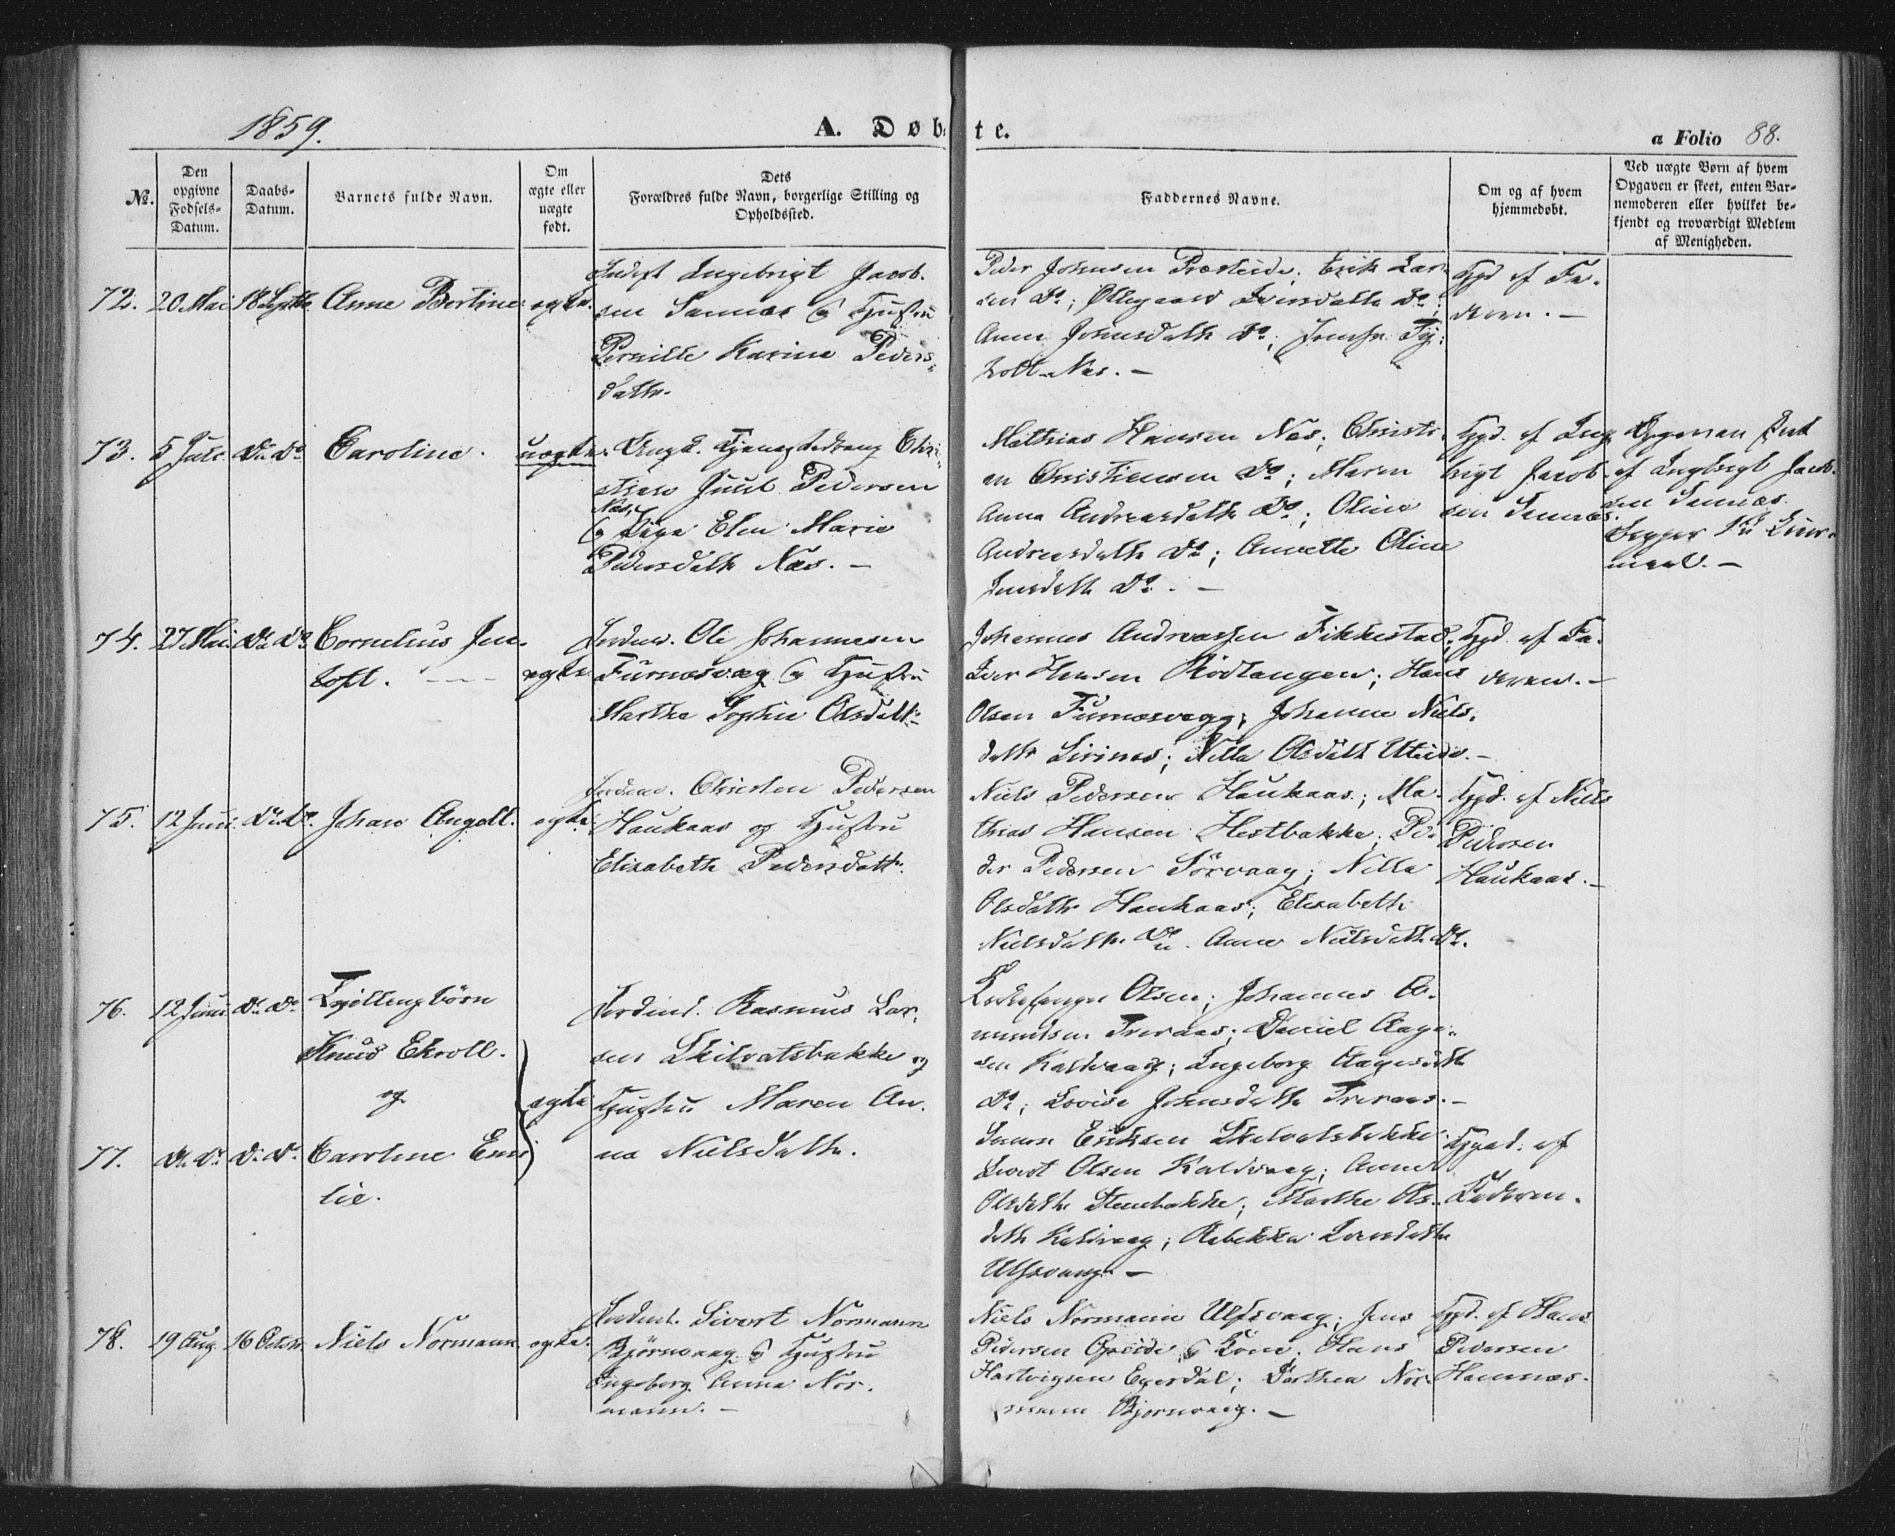 1859.
A. Døbte.
a Folio 88.
No.
Den opgivne Fødsels-Datum.
Daabs-Datum.
Barnets fulde Navn.
Om ægte eller uægte født.
Dets Forældres fulde Navn, borgerlige Stilling og Opholdssted.
Faddernes Navne.
Om og af hvem hjemmedøbt.
Ved uægte Børn af hvem Opgaven er skeet, enten Barnemoderen eller hvilket bekjendt og troværdigt Medlem af Menigheden.
72. 20 Mai 18 Septbr Anne Bertine ægte.
Inderst Ingebrigt Jacob-
sen Sannæs og Hustru
Pernille Karine Peders-
datter.
Peder Johnsen Præsteide; Erik Lar-
sen Do; Ollegaard Iversdatter Do;
Anne Johnsdatter Do;
Næs. —
Hjd af Fa-
deren. —
73. 5 Juli Do Do Caroline. uægte.
Ungk. Chri-
stian Juul Pedersen
Næs
og Pige Elen Marie
Pedersdatter Næs. —
Mathias Hansen Næs; Christi-
an Christiansen Do; Maren
Anna Andreasdatter Do; Oline
Andreasdatter Do; Annette Oline
Jensdatter Do. —
Hjd. af Ing-
brigt Jacob-
sen Sannæs.
Opgaven
af Ingbrigt Jacob-
sen Sannæs.
Begges 1ste Leier-
maal. —
74. 27 Mai Do Do Cornelius Jen-
toft. ægte
Ole Johannesen
Furnæsvæg og Hustru
Marthe Sophie Olsdatter
Johannes Andreassen Fikkestad;
Iver Hansen Rødtangen; Hans
Olsen Furnæsvægg; Johanne Niels-
datter; Nilla Olsdatter Uteide. —
Hjd. af Fa-
deren. —
75. 12 Juni Do Do Johan Angell. ægte
Christen Pedersen
Haukaas og Hustru
Elisabeth Pedersdatter.
Niels Pedersen Haukaas; Ma-
thias Hansen Hestbakke; Pe-
der Pedersen Sørvaag; Nilla
Olsdatter Haukaas; Elisabeth
Nielsdatter Do. Anne Nielsdatter Do.
Hjd. af Niels
Pedersen
Haukaas. —
76. 12 Juni Do Do Tvillingbørn
Knud Ekroll.
og
ægte
Rasmus Lar-
sen Skilvatsbakke og
Hustru Maren An-
na Nielsdatter.
Olsen; Johannes A-
mundsen Treraas; Daniel Aage-
sen Kaldvaag; Ingeborg Aagesdatter
Do; Lovise Johnsdatter Treraas. —
77. Do Do Do Do Caroline Emi-
lie.
Simon Eriksen Skilvatsbakke
Sivert Olsen Kaldvaag; Anne
Olsdatter Stenbakke; Marthe Ols-
datter Kaldvaag; Rebekka
Ulfsvaag. —
Hjd. af
Faderen.
78. 19 Aug. 16 Octobr. Niels Normann ægte.
Sivert Normann
Bjørnvaag og Hustru
Ingeborg Anna Nor-
mann. —
Niels Normann Ulfsvaag; Jens
Pedersen og Kone. Hans
Hartvigsen Egerdal; Dorthea Nor-
mann Bjørnvaag. —
Hjd. af Hans
Pedersen
Hamnæs.